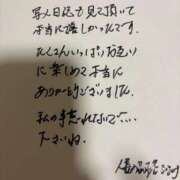 写メ日記も見て頂いて
本当に嬉しかったです。
たくさんいっぱいお互い
に楽しめて本当に
ありがとうございました。
私の事忘れないで
下さいね。